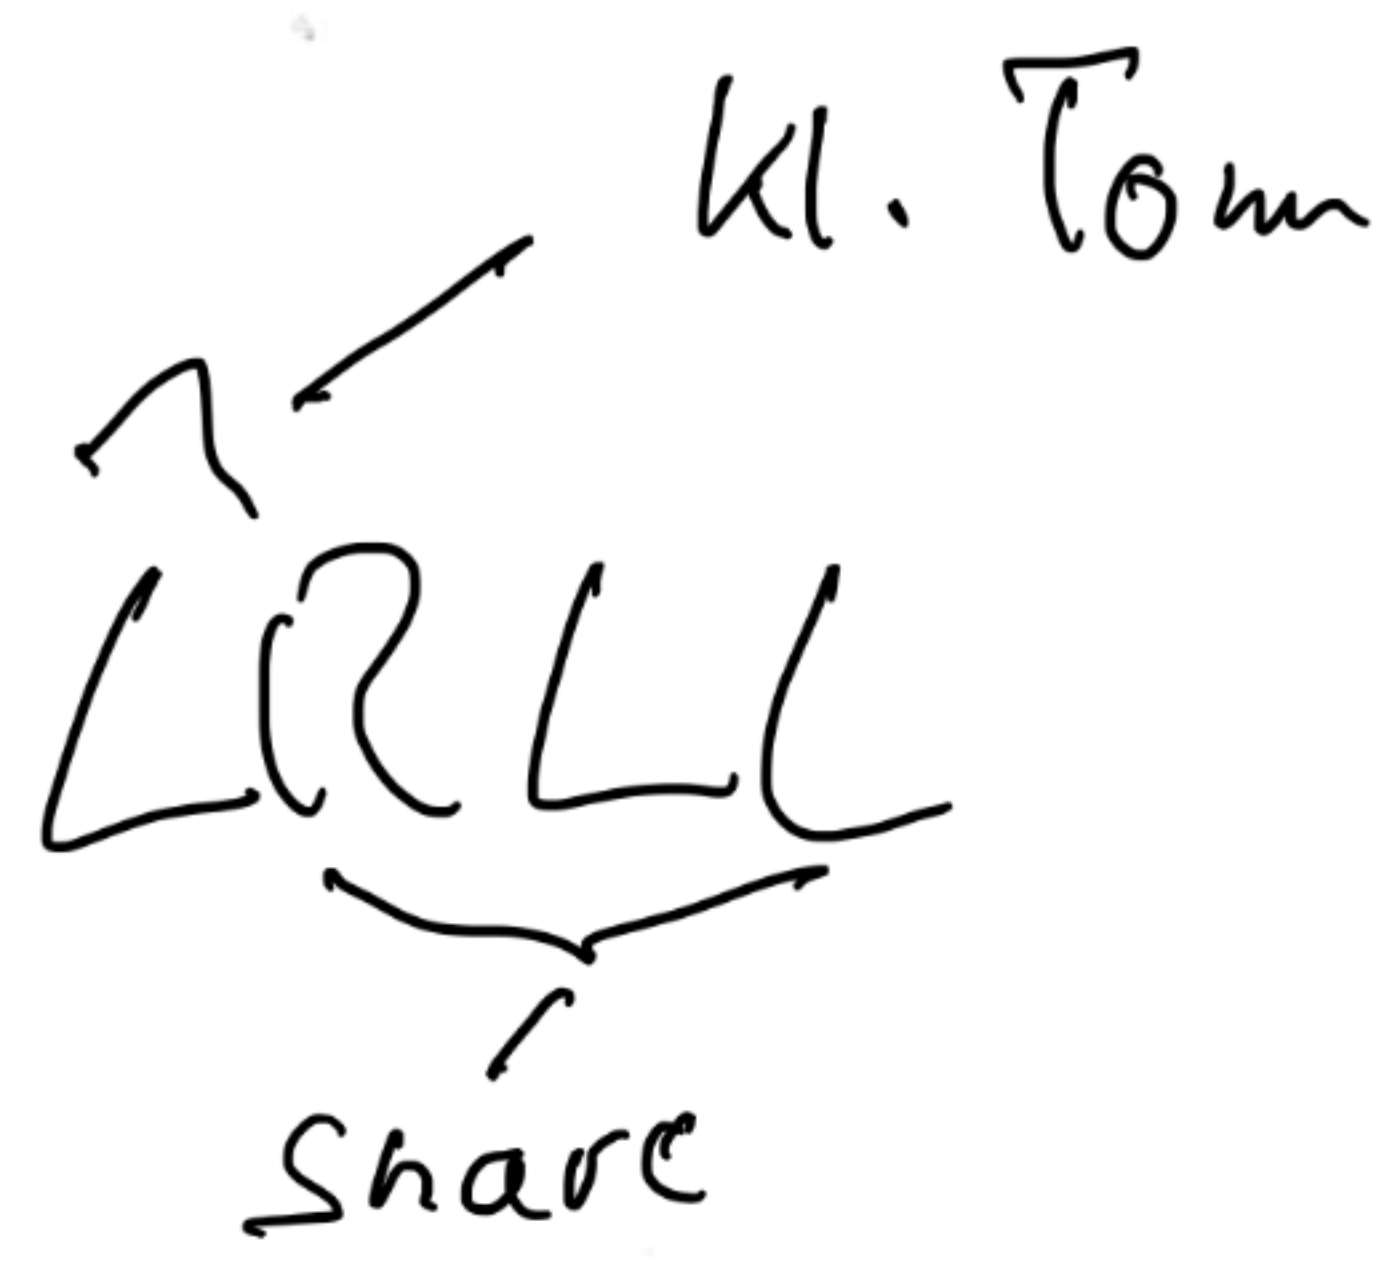 kl. Tom
LRLL
Snare